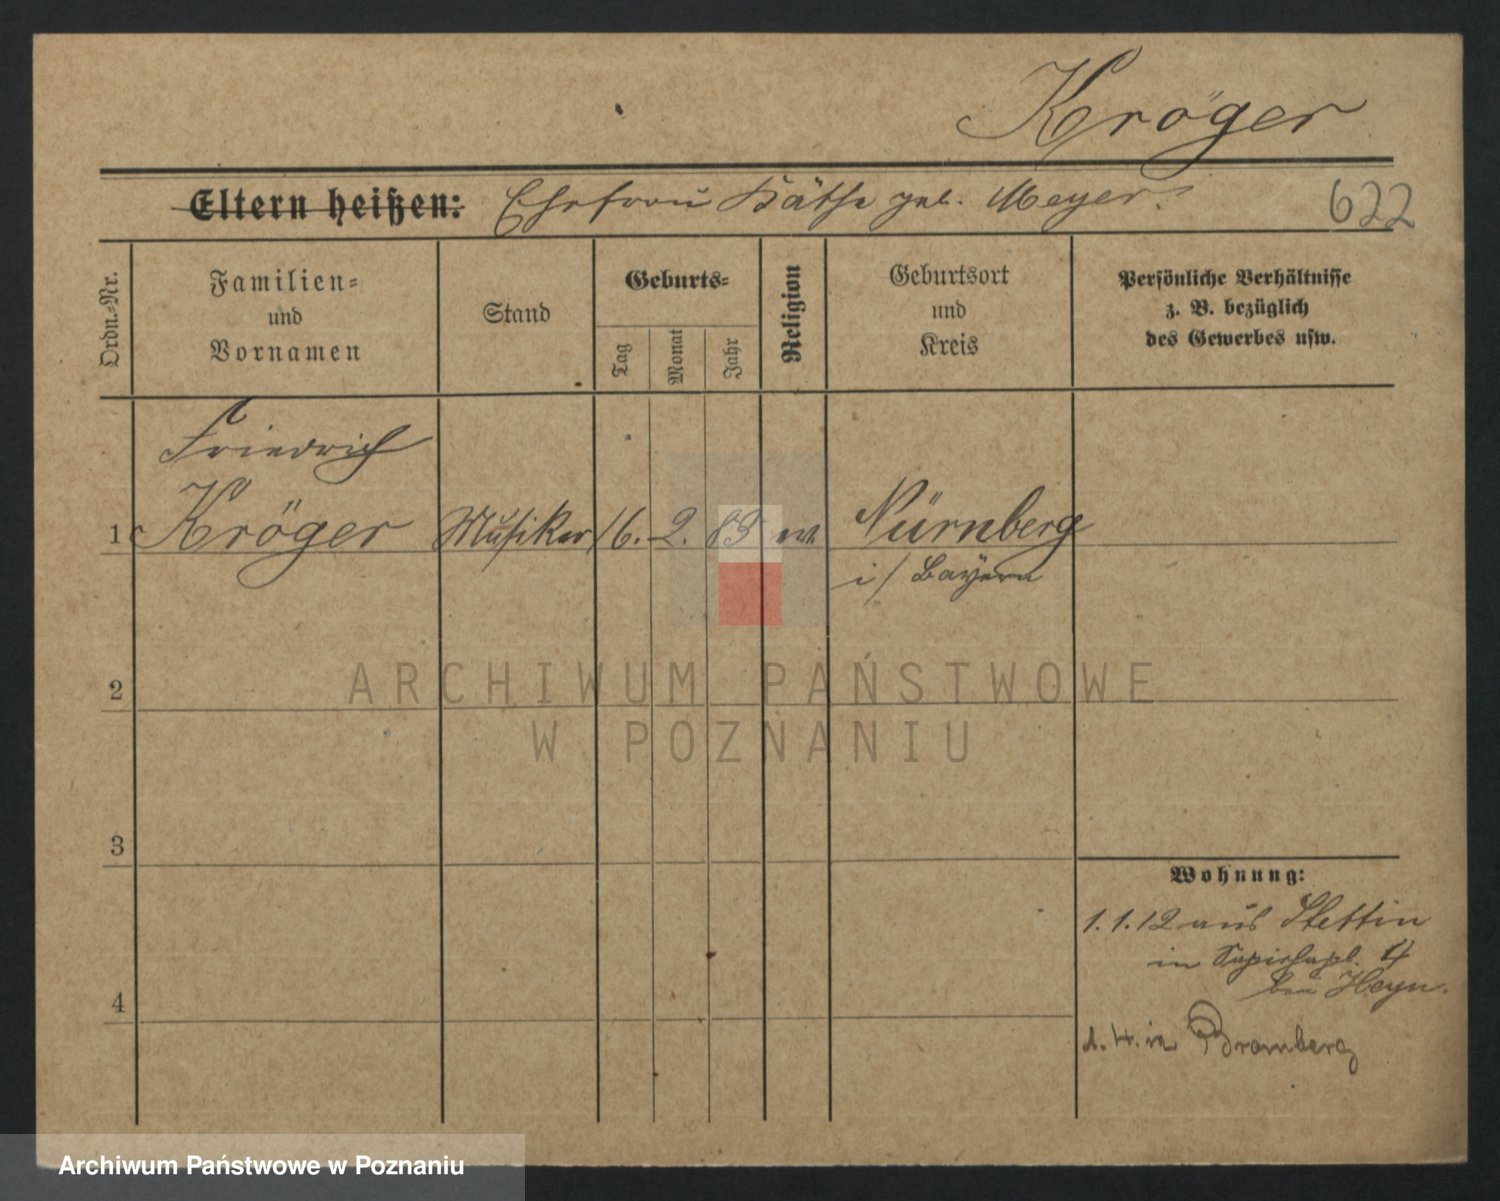 Kröger
Eltern heißen: Ehefrau Käthe geb. Meyer.
622
Ordn.-Nr.
Familien-
und
Vornamen
Stand
Geburts-
Tag
Monat
Jahr
Religion
Geburtsort
und
Kreis
Persönliche Verhältnisse
z. B. bezüglich
des Gewerbes usw.
Friedrich
1 Kröger Musiker 16. 2. 83 ev. Nürnberg
i/ Bayern
2
ARCHIWUM PAŃSTWOWE
W POZNANIU
3
4
Wohnung:
1.1.12 aus Stettin
in Sapiehapl. 4
bei Heyn.
1.4. in Bromberg
Archiwum Państwowe w Poznaniu